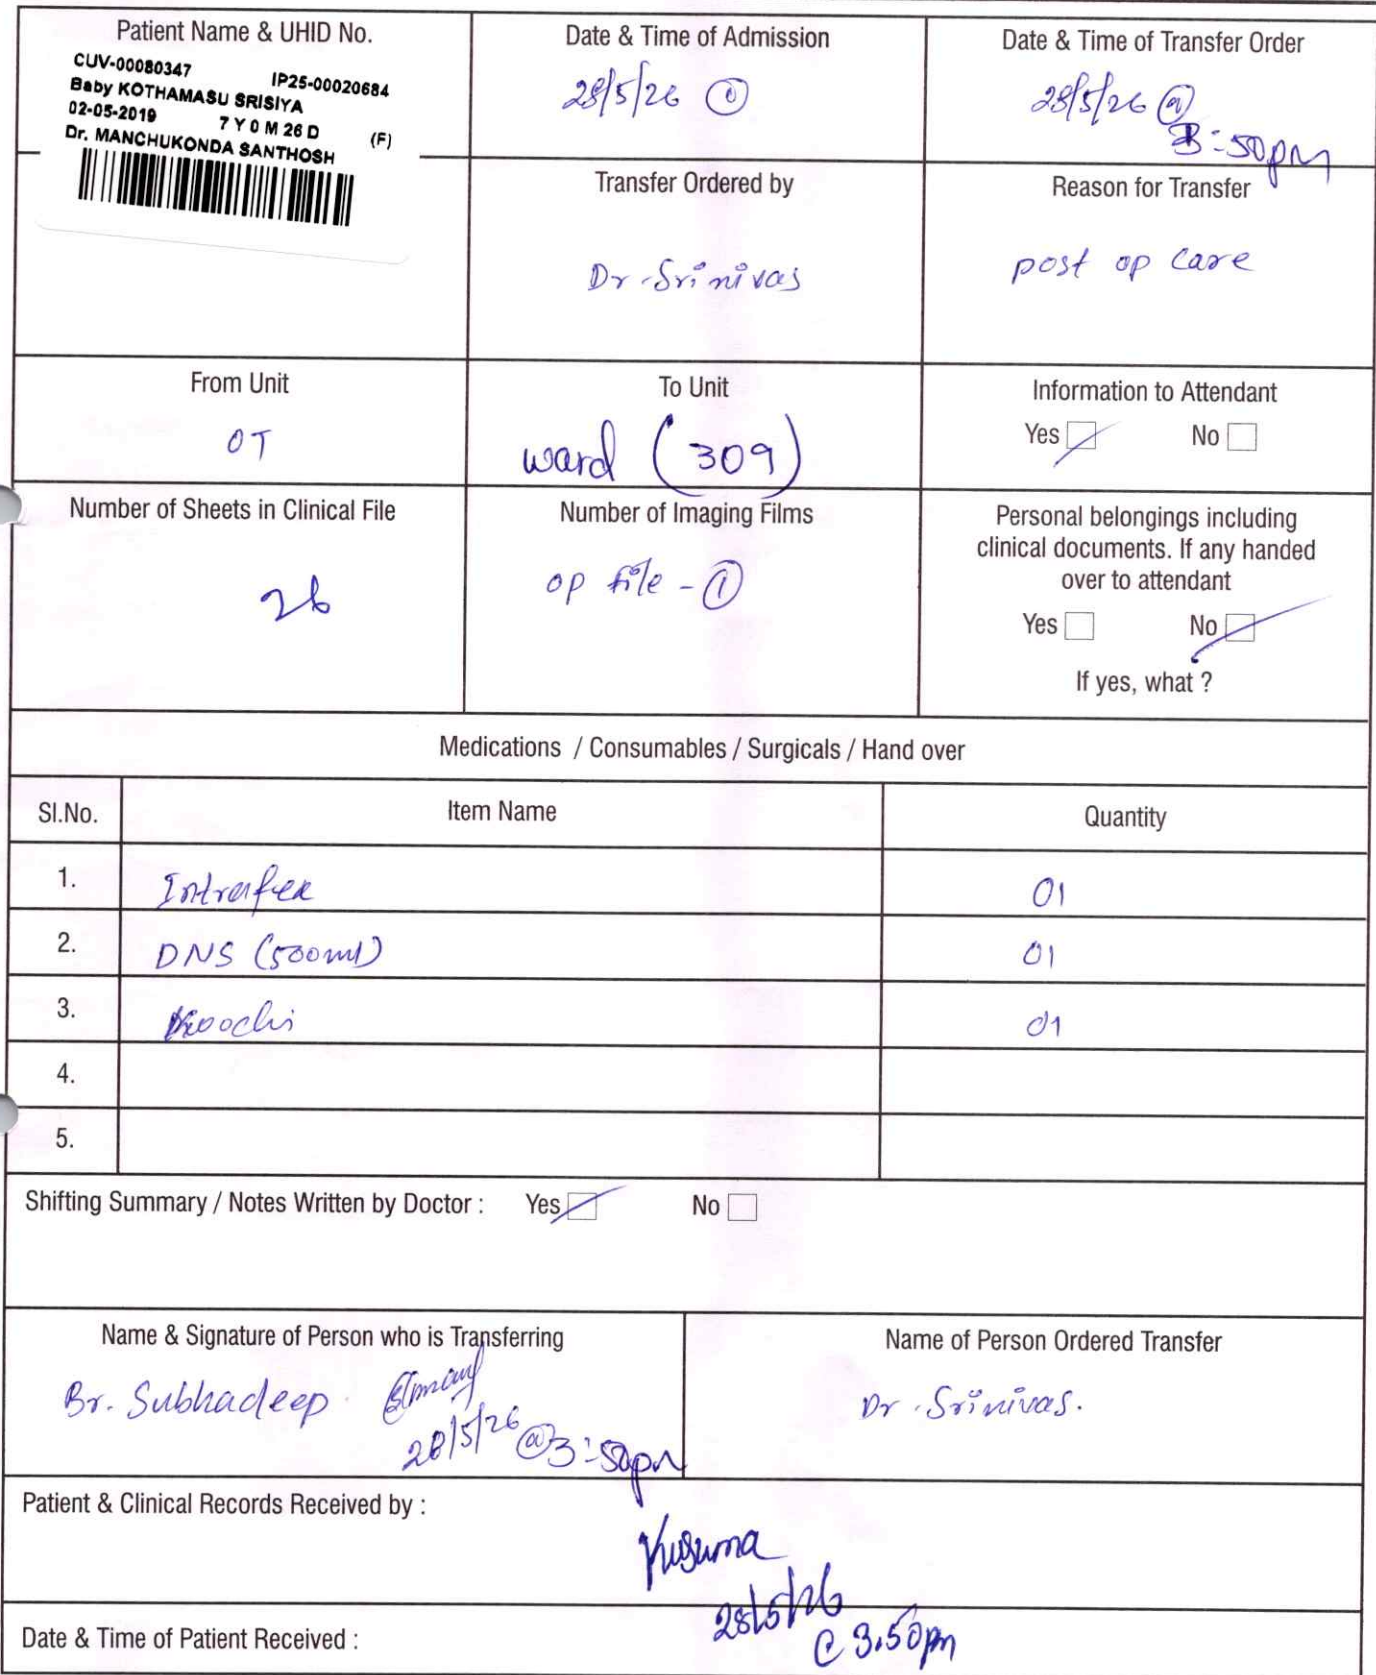 Patient Name & UHID No.
CUV-00080347 IP25-00020684
Baby KOTHAMASU SRISIYA
02-05-2019 7 Y 0 M 26 D (F)
Dr. MANCHUKONDA SANTHOSH
Date & Time of Admission
28/5/26 @
Date & Time of Transfer Order
28/5/26 @
3:50pm
Transfer Ordered by
Dr. Srinivas
Reason for Transfer
post op care
From Unit
OT
To Unit
ward (309)
Information to Attendant
Yes No
Number of Sheets in Clinical File
26
Number of Imaging Films
op file - ①
Personal belongings including
clinical documents. If any handed
over to attendant
Yes No
If yes, what ?
Medications / Consumables / Surgicals / Hand over
Sl.No. Item Name Quantity
1. 01
2. DNS (500ml) 01
3. 01
4.
5.
Shifting Summary / Notes Written by Doctor : Yes No
Name & Signature of Person who is Transferring
Br. Subhadeep
28/5/26 @ 3:50pm
Name of Person Ordered Transfer
Dr. Srinivas.
Patient & Clinical Records Received by :
Kusuma
28/5/26
@ 3.50pm
Date & Time of Patient Received :